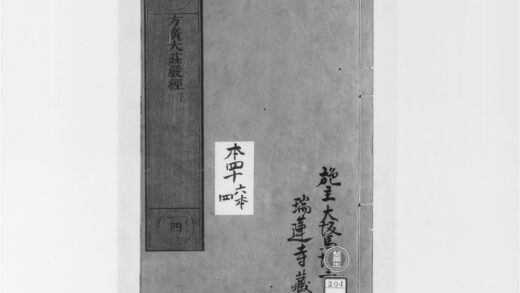 方廣大莊嚴經下
四
本四十
六本
四
施主大坂
瑞蓮寺藏
204